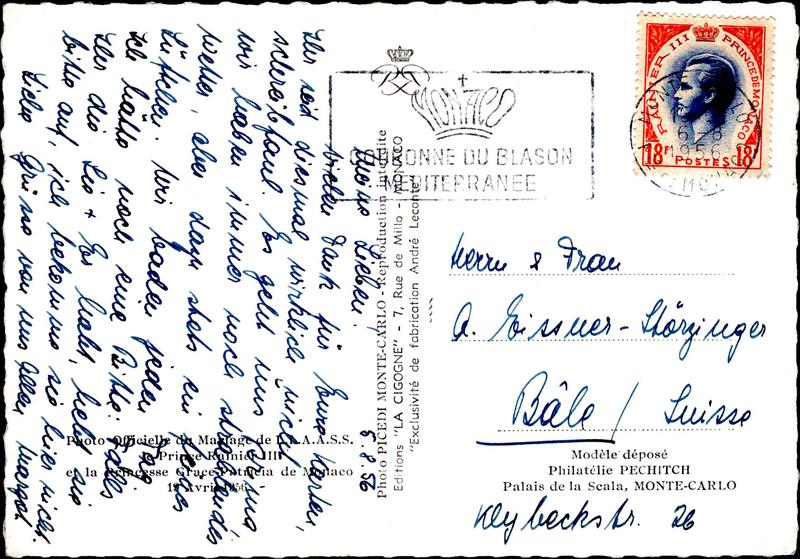 5.8.56
Meine Lieben,
vielen Dank für Eure Karten,
Ihr seid diesmal wirklich nicht
schreibfaul. Es geht uns prima
wir haben immer noch strahlendes
Wetter, aber dazu stets ein
Lüftchen. Wir baden jeden Tag
Ich hätte noch eine Bitte. Falls
Ihr die
bitte auf, ich bekomme sie hier nicht.
Liebe Grüsse von uns Allen Margot
MONACO
COURONNE DU BLASON
MEDITERRANEE
RAINIER III PRINCE DE MONACO
18F POSTES 18F
6-8
1956
Photo PICEDI MONTE-CARLO - Reproduction interdite
Editions "LA CIGOGNE" - 7, Rue de Millo - MONACO
"Exclusivité de fabrication André Leconte"
Herrn & Frau
A. Eissner-Störzinger
Bâle / Suisse
Kleybeckstr. 26
Photo Officielle du Mariage de L.L.A.A.S.S.
le Prince Rainier III
et la Princesse Grace Patricia de Monaco
19 Avril 1956
Modèle déposé
Philatélie PECHITCH
Palais de la Scala, MONTE-CARLO